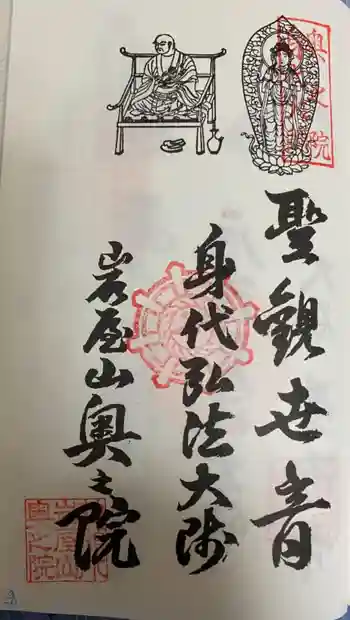 奥之院
聖観世音
身代弘法大師
岩屋山奥之院
岩屋山
奥之院